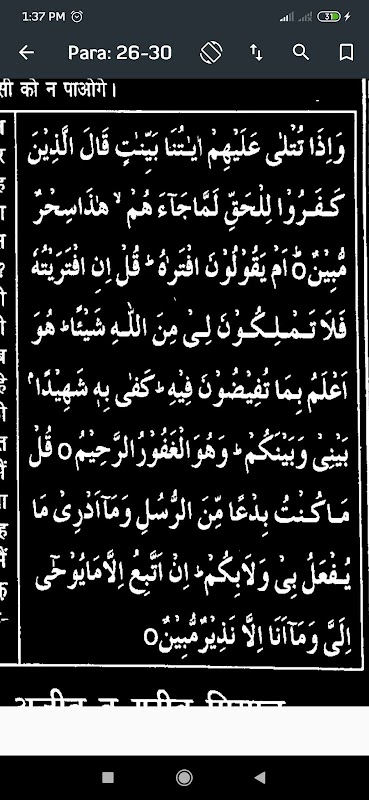 1:37 PM
31
Para: 26-30
सी को न पाओगे।
وَاِذَا تُتْلٰى عَلَيْهِمْ اٰيٰتُنَا بَيِّنٰتٍ قَالَ الَّذِيْنَ
كَفَرُوْا لِلْحَقِّ لَمَّا جَآءَ هُمْ ۙ هٰذَا سِحْرٌ
مُّبِيْنٌ ۝ اَمْ يَقُوْلُوْنَ افْتَرٰىهُ ؕ قُلْ اِنِ افْتَرَيْتُهٗ
فَلَا تَمْلِكُوْنَ لِىْ مِنَ اللّٰهِ شَيْئًا ؕ هُوَ
اَعْلَمُ بِمَا تُفِيْضُوْنَ فِيْهِ ؕ كَفٰى بِهٖ شَهِيْدًاۢ
بَيْنِىْ وَبَيْنَكُمْ ؕ وَهُوَ الْغَفُوْرُ الرَّحِيْمُ ۝ قُلْ
مَا كُنْتُ بِدْعًا مِّنَ الرُّسُلِ وَمَآ اَدْرِىْ مَا
يُفْعَلُ بِىْ وَلَا بِكُمْ ؕ اِنْ اَتَّبِعُ اِلَّا مَا يُوْحٰٓى
اِلَىَّ وَمَآ اَنَا اِلَّا نَذِيْرٌ مُّبِيْنٌ ۝